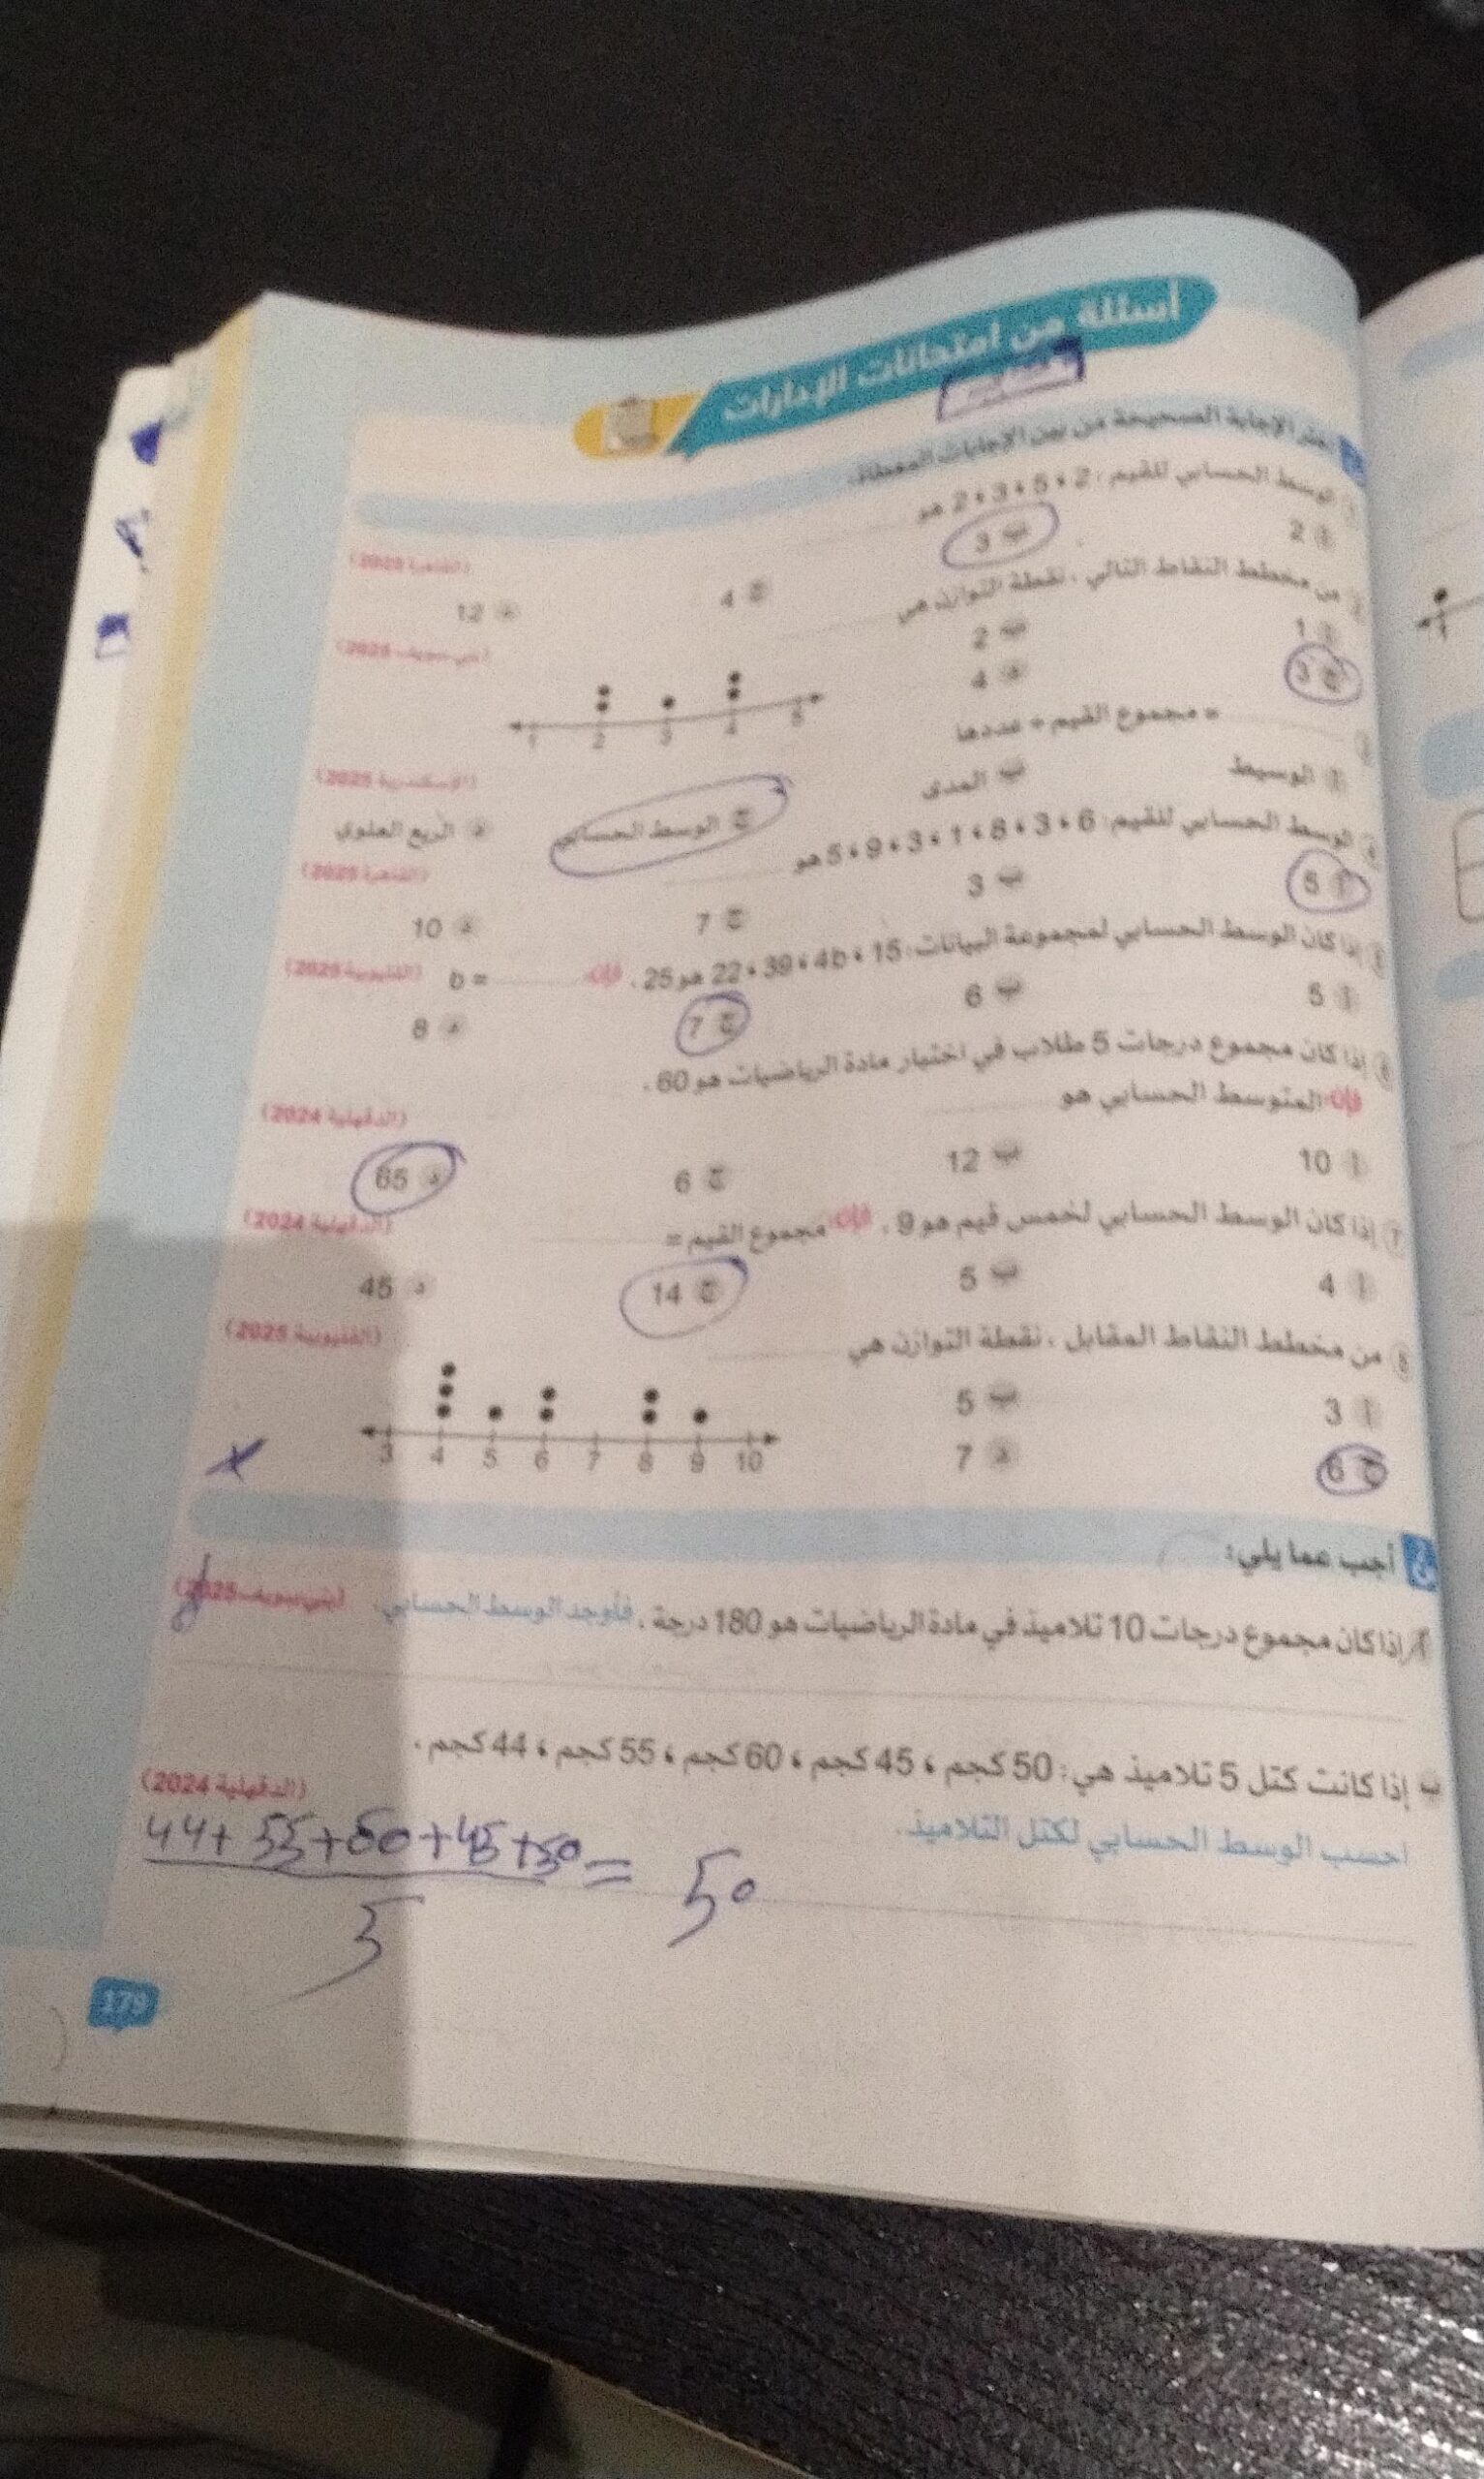 أسئلة من امتحانات الإدارات
اختر الإجابة الصحيحة من بين الإجابات المعطاة:
1 الوسط الحسابي للقيم: 2 ، 5 ، 3 ، 2 هو (القاهرة 2025)
أ 2 ب 3 ج 4 د 12
2 من مخطط النقاط التالي ، نقطة التوازن هي (بني سويف 2025)
أ 1 ب 2
ج 3 د 4
1 2 3 4 5
3 = مجموع القيم ÷ عددها (الإسكندرية 2025)
أ الوسيط ب المدى ج الوسط الحسابي د الربع العلوي
4 الوسط الحسابي للقيم: 6 ، 3 ، 8 ، 1 ، 3 ، 9 ، 5 هو (القاهرة 2025)
أ 5 ب 3 ج 7 د 10
5 إذا كان الوسط الحسابي لمجموعة البيانات: 15 ، 4b ، 39 ، 22 هو 25 ، فإن: b = (القليوبية 2025)
أ 5 ب 6 ج 7 د 8
6 إذا كان مجموع درجات 5 طلاب في اختبار مادة الرياضيات هو 60 ،
فإن: المتوسط الحسابي هو (الدقهلية 2024)
أ 10 ب 12 ج 6 د 65
7 إذا كان الوسط الحسابي لخمس قيم هو 9 ، فإن: مجموع القيم = (الدقهلية 2024)
أ 4 ب 5 ج 14 د 45
8 من مخطط النقاط المقابل ، نقطة التوازن هي (القليوبية 2025)
أ 3 ب 5
ج 6 د 7
3 4 5 6 7 8 9 10
أجب عما يلي:
أ إذا كان مجموع درجات 10 تلاميذ في مادة الرياضيات هو 180 درجة ، فأوجد الوسط الحسابي. (بني سويف 2025)
ب إذا كانت كتل 5 تلاميذ هي: 50 كجم ، 45 كجم ، 60 كجم ، 55 كجم ، 44 كجم ،
احسب الوسط الحسابي لكتل التلاميذ. (الدقهلية 2024)
44+ 55+60+45+50 = 50
5
179